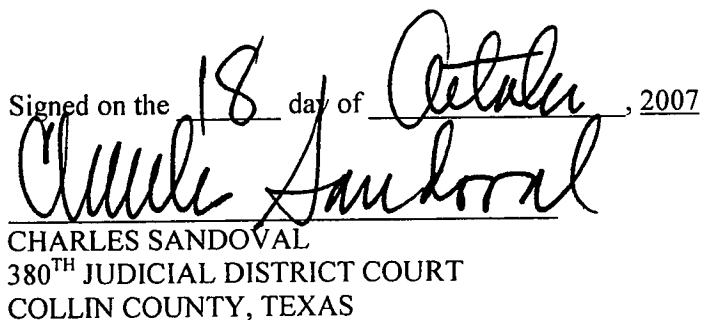 Signed on the 18 day of October, 2007
Charles Sandoval
CHARLES SANDOVAL
380TH JUDICIAL DISTRICT COURT
COLLIN COUNTY, TEXAS